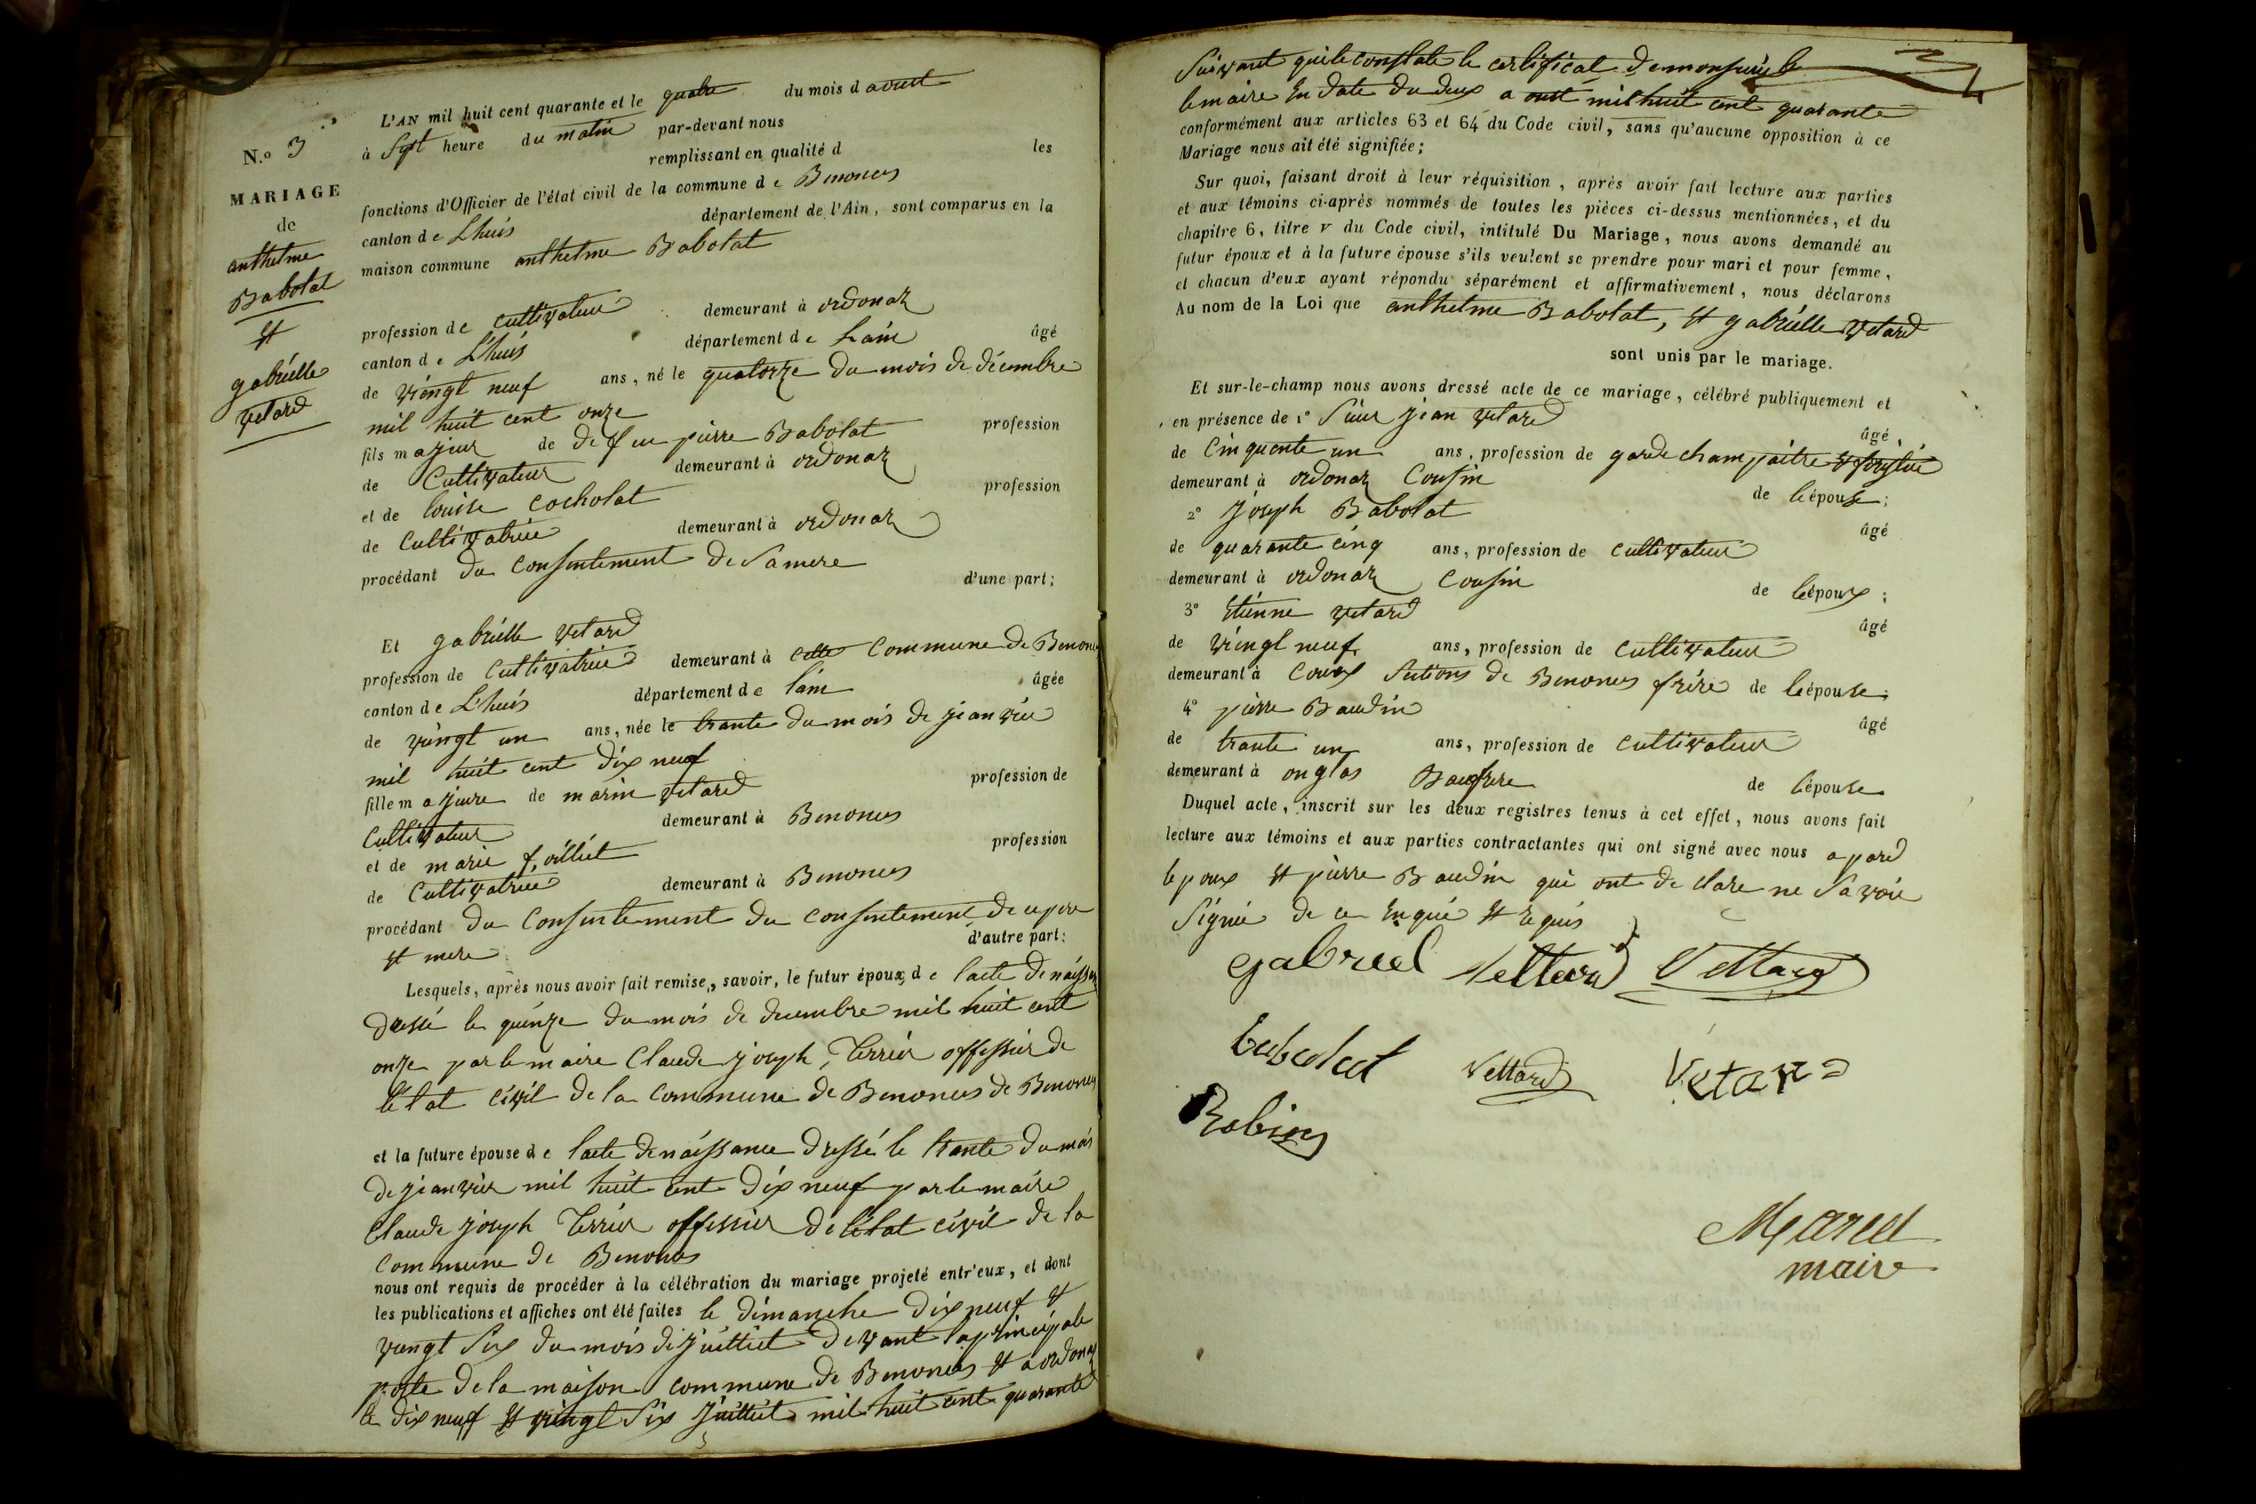 N.o 3
MARIAGE
de
anthelme
Babolat
et
gabrielle
vetard
L'AN mil huit cent quarante et le quatre du mois d aoust
à Sept heure du matin par-devant nous
remplissant en qualité d les
fonctions d'Officier de l'état civil de la commune d e Benonces
canton d e Lhuis département de l'Ain, sont comparus en la
maison commune anthelme Babolat
profession de cultivateur demeurant à ordonaz
canton d e Lhuis département d e Lain âgé
de vingt neuf ans, né le quatorze du mois de décembre
mil huit cent onze
fils majeur de de feu pierre Babolat profession
de Cultivateur demeurant à ordonaz
et de louise Cocholat profession
de Cultivatrice demeurant à ordonaz
procédant du Consentement de Samere
d'une part;
Et gabrielle vetard
profession de Cultivatrice demeurant à cette Commune de Benonces
canton d e Lhuis département d e lain âgée
de vingt un ans, née le trante du mois de jeanvier
mil huit cent dix neuf
fille majeure de marin vetard profession de
Cultivateur demeurant à Benonces
et de marie profession
de Cultivatrice demeurant à Benonces
procédant du Consentement du consentement de ce pere
et mere d'autre part:
Lesquels, après nous avoir fait remise, savoir, le futur époux, d e lacte denaissance
dressé le quinze du mois de decembre mil huit cent
onze par le maire Claude joseph Terrier offessier de
létat civil de la commune de Benonces de Benonces
et la future épouse d e lacte denaissance dressé le trante du mois
de jeanvier mil huit cent dix neuf par le maire
Claude joseph Terrier offessier de létat civil de la
commune de Benonces
nous ont requis de procéder à la célébration du mariage projeté entr'eux, et dont
les publications et affiches ont été faites le dimanche dix neuf et
vingt Six du mois de juilliet devant laprincipale
porte de la maison commune de Benonces et a ordonaz
le dix neuf et vingt Six juilliet mil huit cent quarante
Suivant quile constate le certificat demonsieur le
le maire En date du deux a oust mil huit cent quarante
conformément aux articles 63 et 64 du Code civil, sans qu'aucune opposition à ce
Mariage nous ait été signifiée;
Sur quoi, faisant droit à leur réquisition, après avoir fait lecture aux parties
et aux témoins ci-après nommés de toutes les pièces ci-dessus mentionnées, et du
chapitre 6, titre v du Code civil, intitulé Du Mariage, nous avons demandé au
futur époux et à la future épouse s'ils veulent se prendre pour mari et pour femme,
et chacun d'eux ayant répondu séparément et affirmativement, nous déclarons
Au nom de la Loi que anthelme Babolat, et gabrielle vetard
sont unis par le mariage.
Et sur-le-champ nous avons dressé acte de ce mariage, célébré publiquement et
en présence de 1° Sieur jean vetard âgé
de Cinquente un ans, profession de garde champaitre et
demeurant à ordonaz Cousin de lépouse;
2° joseph Babolat âgé
de quarante cinq ans, profession de cultivateur
demeurant à ordonaz Cousin de lépoux;
3° Etienne vetard âgé
de vingt neuf ans, profession de cultivateur
demeurant à Sections de Benonces frére de lépouse;
4° pierre Baudin âgé
de trante un ans, profession de cultivateur
demeurant à onglas Baufrere de lépouse
Duquel acte, inscrit sur les deux registres tenus à cet effet, nous avons fait
lecture aux témoins et aux parties contractantes qui ont signé avec nous apard
lepoux et pierre Baudin qui ont de clare ne Savoir
Signié de ce Enquie et Requis
gabriel Vettard Vettard
babolat Vettard Vetard
Robin
Maret
maire